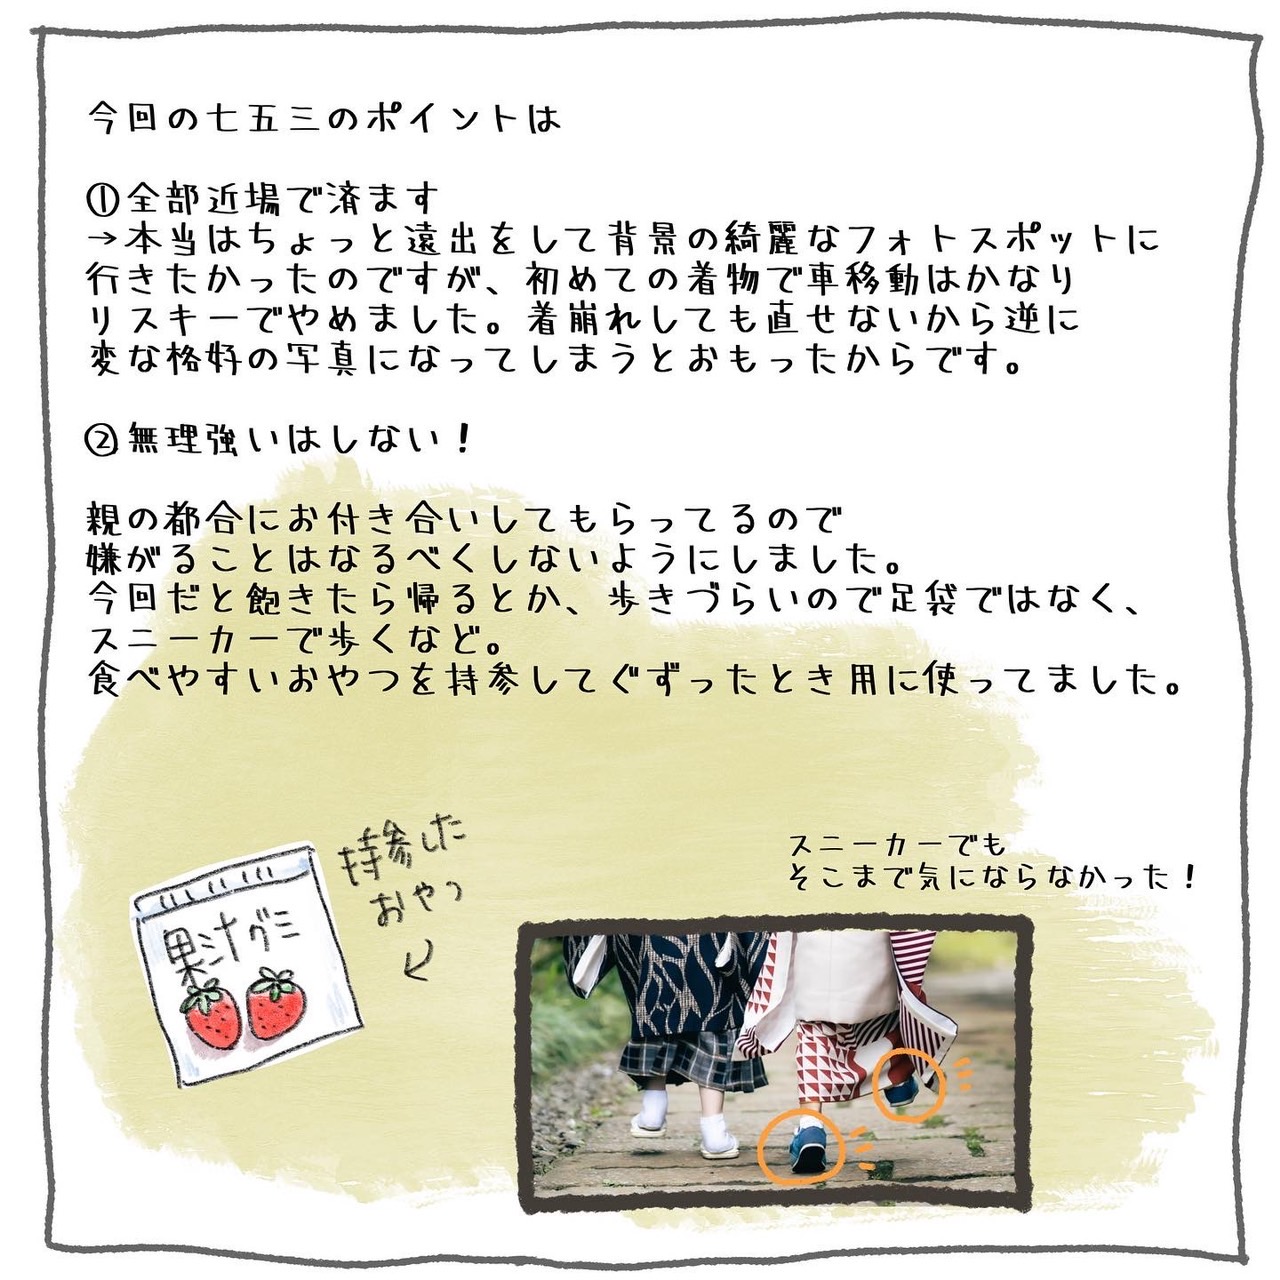 今回の七五三のポイントは
①全部近場で済ます
→本当はちょっと遠出をして背景の綺麗なフォトスポットに
行きたかったのですが、初めての着物で車移動はかなり
リスキーでやめました。着崩れしても直せないから逆に
変な格好の写真になってしまうとおもったからです。
②無理強いはしない！
親の都合にお付き合いしてもらってるので
嫌がることはなるべくしないようにしました。
今回だと飽きたら帰るとか、歩きづらいので足袋ではなく、
スニーカーで歩くなど。
食べやすいおやつを持参してぐずったとき用に使ってました。
持参した
おやつ
果汁グミ
スニーカーでも
そこまで気にならなかった！